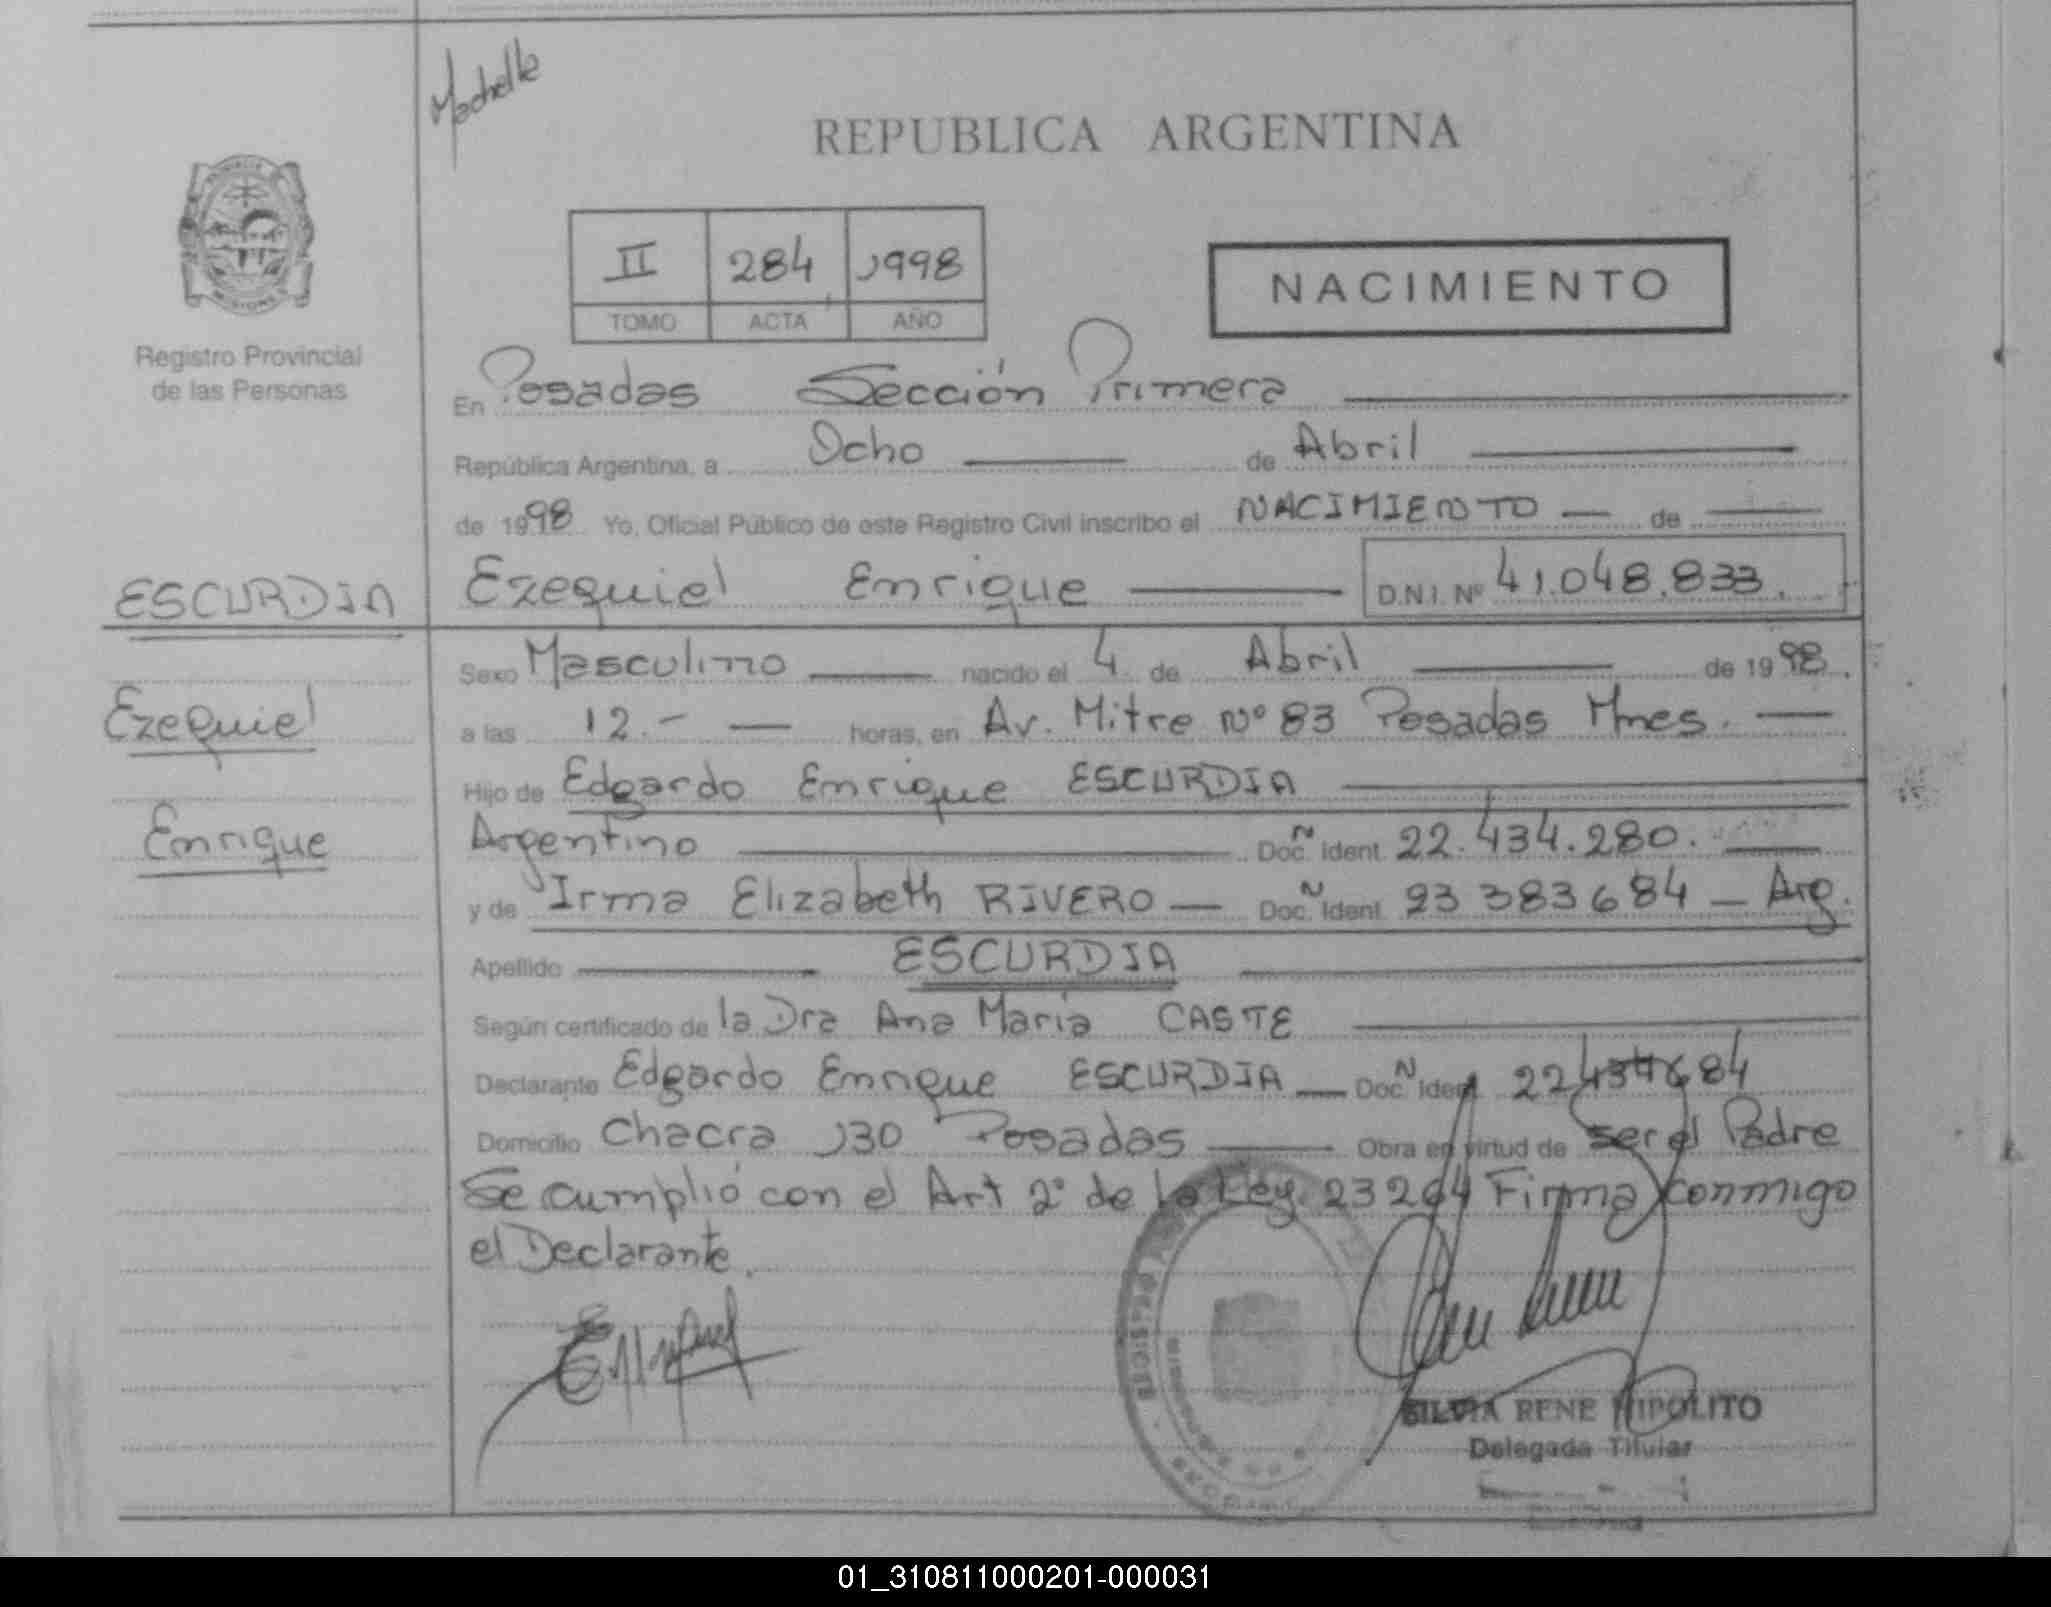 Machelle
REPUBLICA ARGENTINA
II 284 1998
TOMO ACTA AÑO
NACIMIENTO
Registro Provincial
de las Personas
En Posadas Sección Primera
República Argentina, a Ocho de Abril
de 1998 Yo, Oficial Público de este Registro Civil inscribo el NACIMIENTO de
ESCURDIA
Ezequiel Enrique D.N.I. Nº 41.048.833.
Sexo Masculino nacido el 4 de Abril de 1998.
Ezequiel
a las 12.- horas, en Av. Mitre Nº 83 Posadas Mnes.
Hijo de Edgardo Enrique ESCURDIA
Enrique
Argentino Doc. Ñ Ident. 22.434.280.
y de Irma Elizabeth RIVERO — Doc. Ñ Ident. 23 383 684 — Arg.
Apellido ESCURDIA
Según certificado de la Dra Ana Maria CASTE
Declarante Edgardo Enrique ESCURDIA — Doc. N Ident 22434684
Domicilio Chacra 130 Posadas Obra en virtud de ser el Padre
Se cumplió con el Art 2º de la Ley 23264 Firma conmigo
el Declarante.
SILVIA RENE HIPOLITO
Delegada Titular
01_310811000201-000031